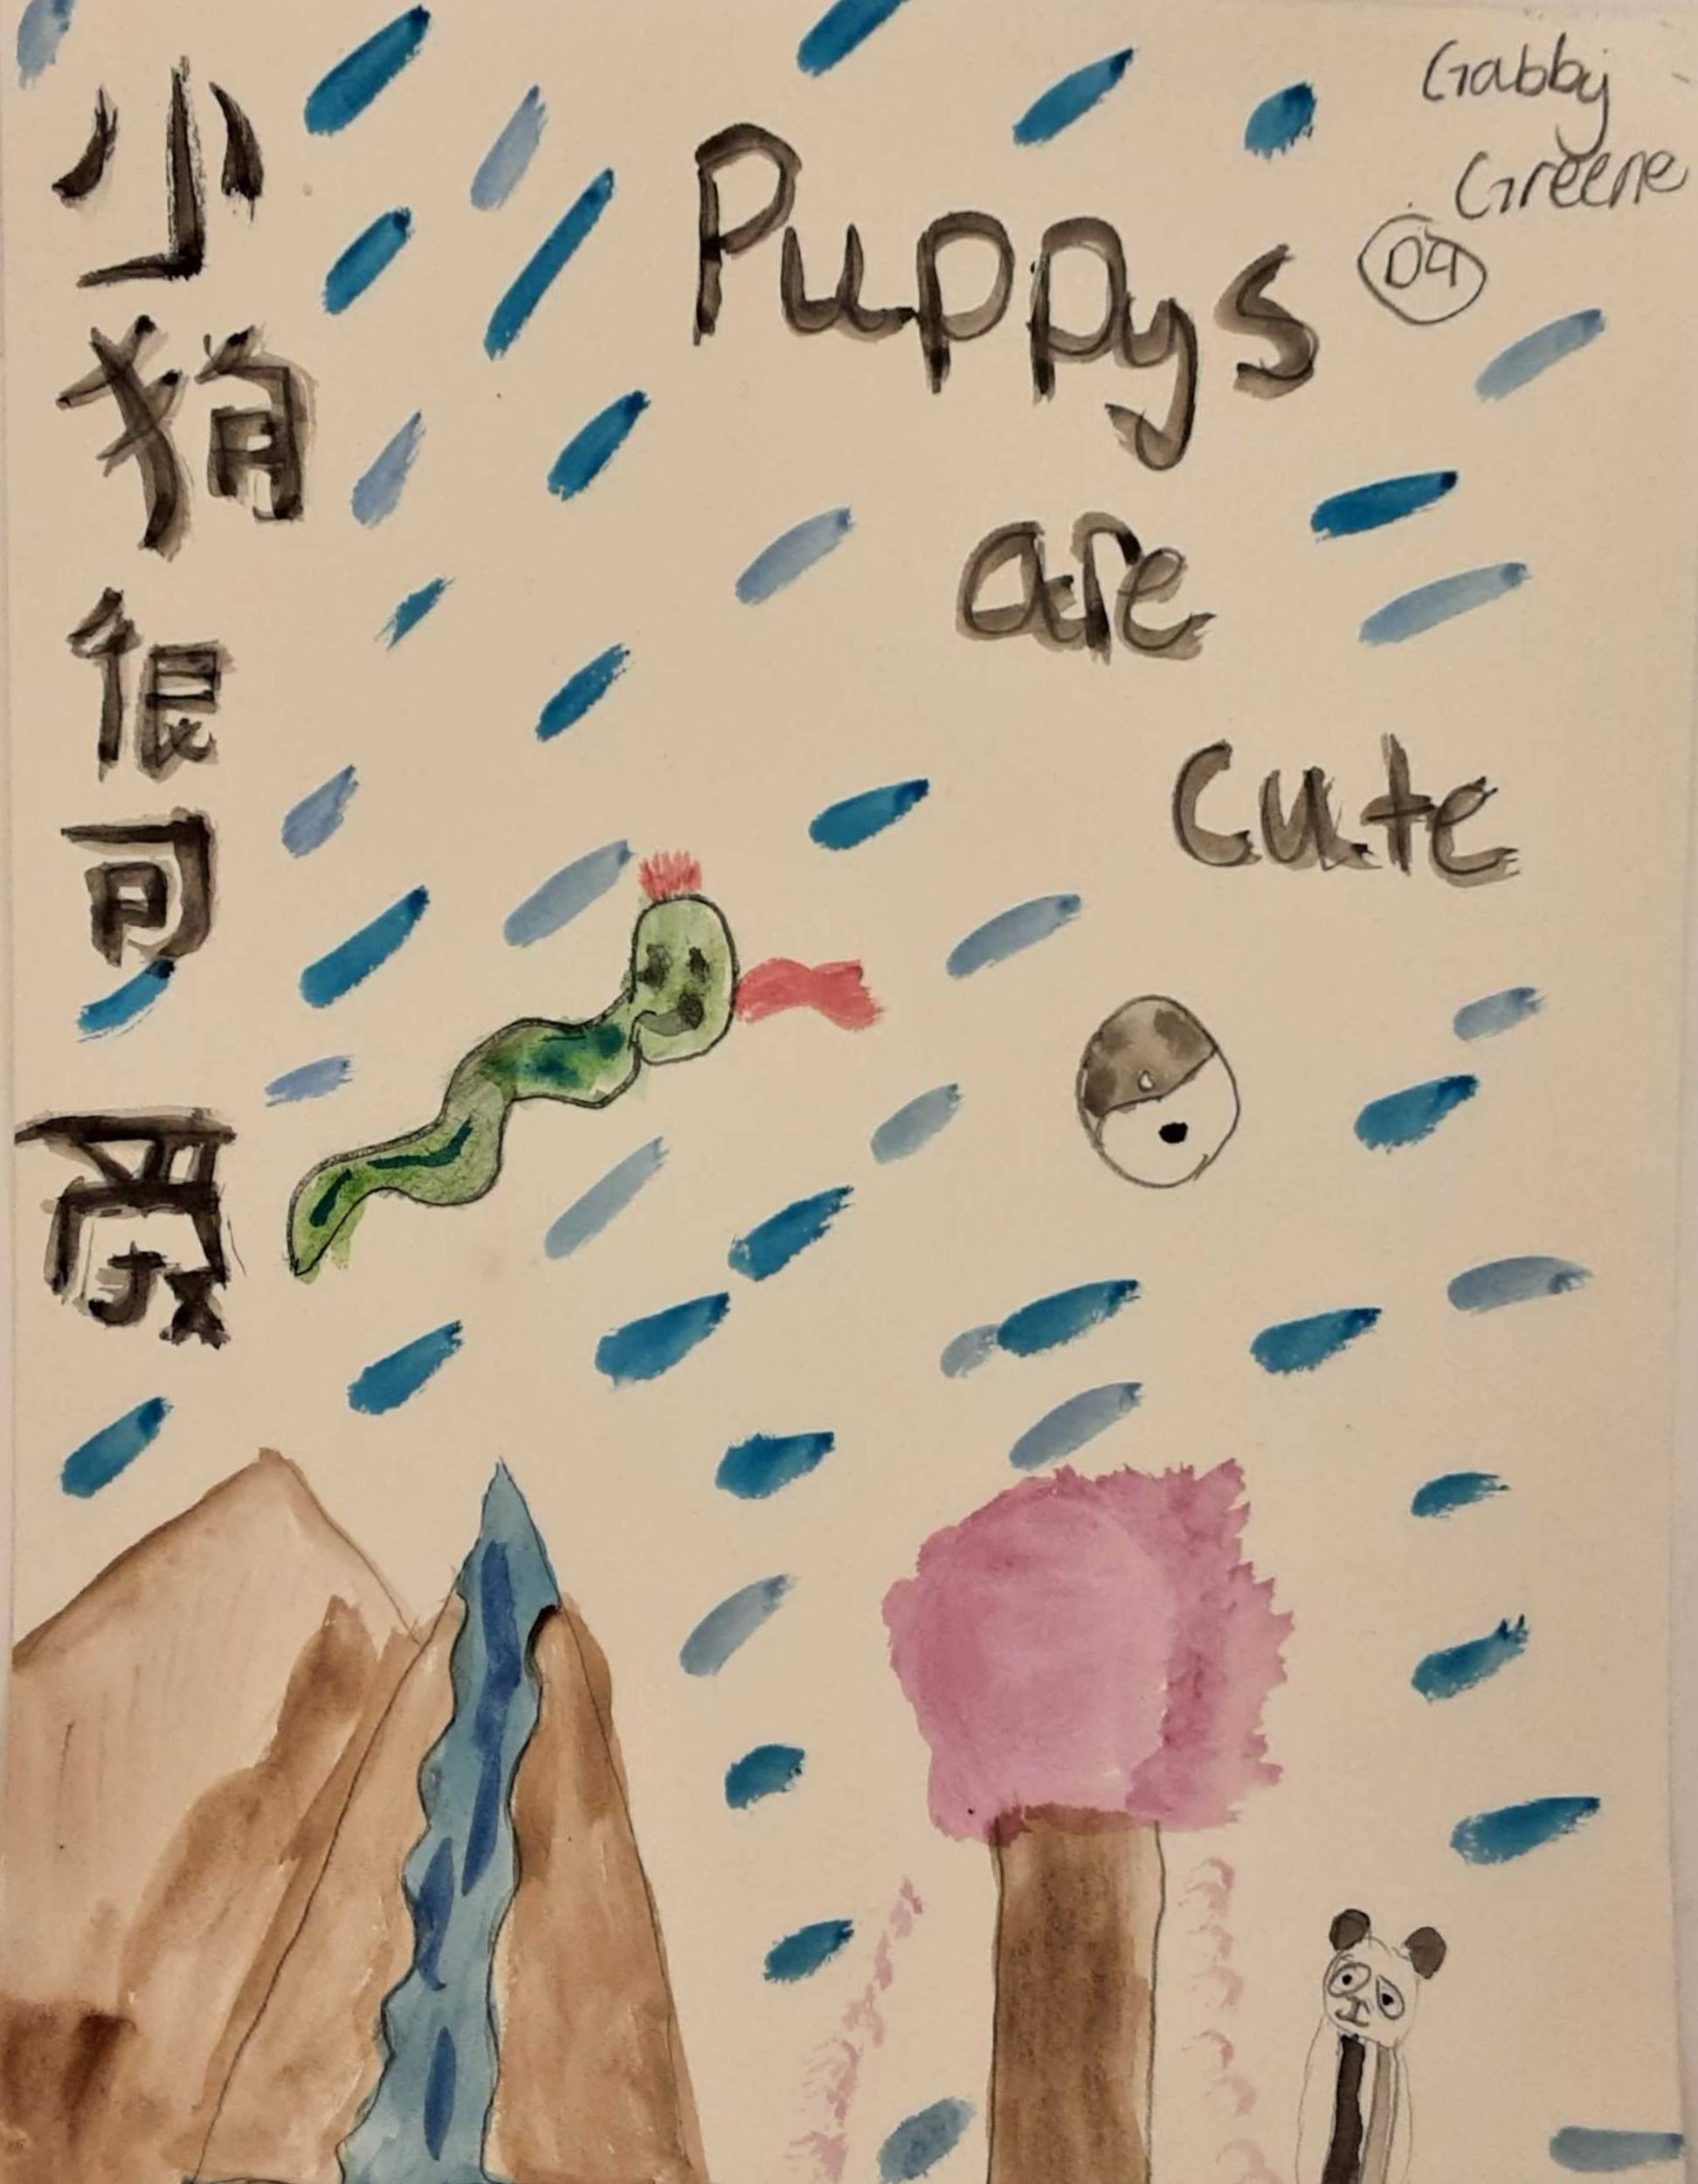 小
狗
很
可
爱
Gabby
Greene
D4
Puppys
are
cute